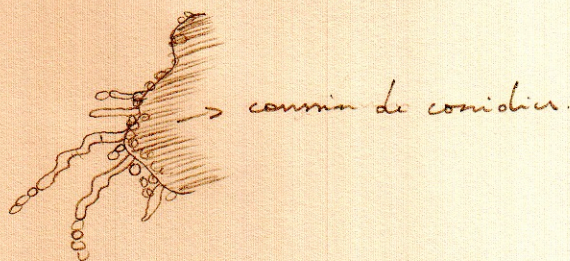 coussin de conidies.